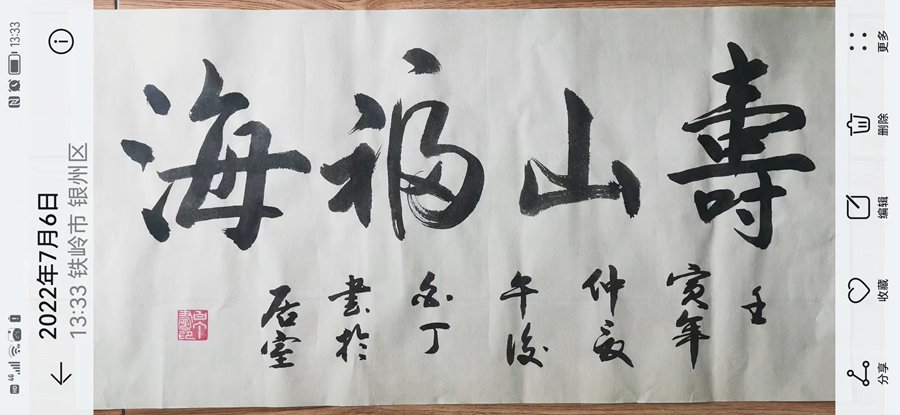 13:33
2022年7月6日
13:33 铁岭市 银州区
壽山福海
壬
寅年
仲夏
午後
白丁
書於
居室
分享
收藏
编辑
删除
更多